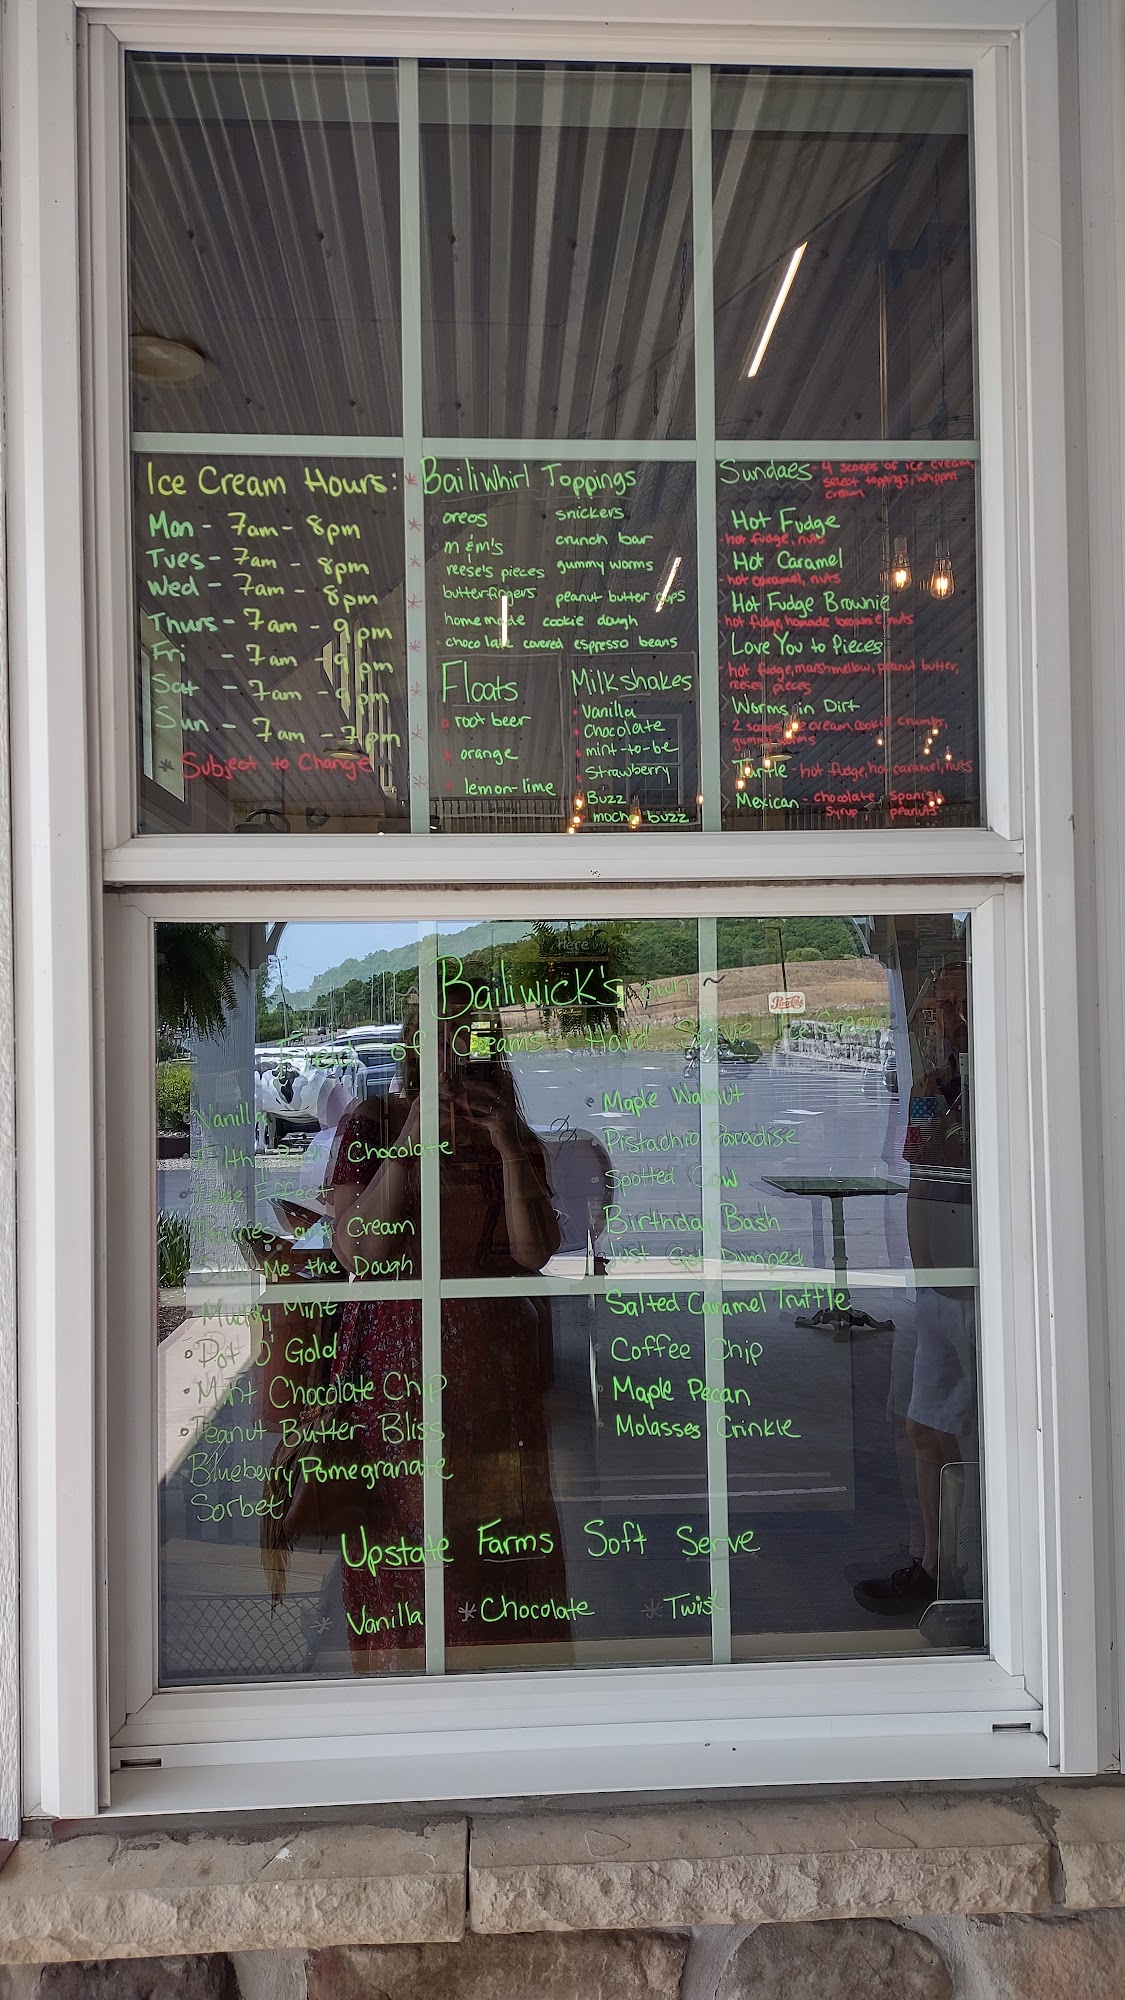 Ice Cream Hours:
Mon - 7am - 8pm
Tues - 7am - 8pm
Wed - 7am - 8pm
Thurs - 7am - 9pm
Fri - 7am - 9pm
Sat - 7am - 9pm
Sun - 7am - 7pm
* Subject to Change
Bailiwhirl Toppings
oreos
m&m's
reese's pieces
butterfingers
homemade cookie dough
chocolate covered espresso beans
snickers
crunch bar
gummy worms
peanut butter cups
Floats
root beer
orange
lemon-lime
Milkshakes
Vanilla
Chocolate
mint-to-be
Strawberry
Buzz
mocha buzz
Sundaes - 4 scoops of ice cream,
select toppings, whipped
cream
Hot Fudge
- hot fudge, nuts
Hot Caramel
- hot caramel, nuts
Hot Fudge Brownie
hot fudge, homade brownie, nuts
Love You to Pieces
- hot fudge, marshmellow, peanut butter,
reeses pieces
Worms in Dirt
2 scoops ice cream, cookie crumbs,
gummy worms
Turtle - hot fudge, hot caramel, nuts
Mexican - chocolate Spanish
syrup, peanuts
Here
Bailiwick's own ~
Field of Creams Hard Serve Ice Cream
Pepsi-Cola
Vanilla
Chocolate
Lake Effect
and Cream
Me the Dough
Muddy Mint
Pot O Gold
Mint Chocolate Chip
Peanut Butter Bliss
Blueberry Pomegranate
Sorbet
Maple Walnut
Pistachio Paradise
Spotted Cow
Birthday Bash
Just Got Dumped
Salted Caramel Truffle
Coffee Chip
Maple Pecan
Molasses Crinkle
Upstate Farms Soft Serve
* Vanilla * Chocolate * Twist